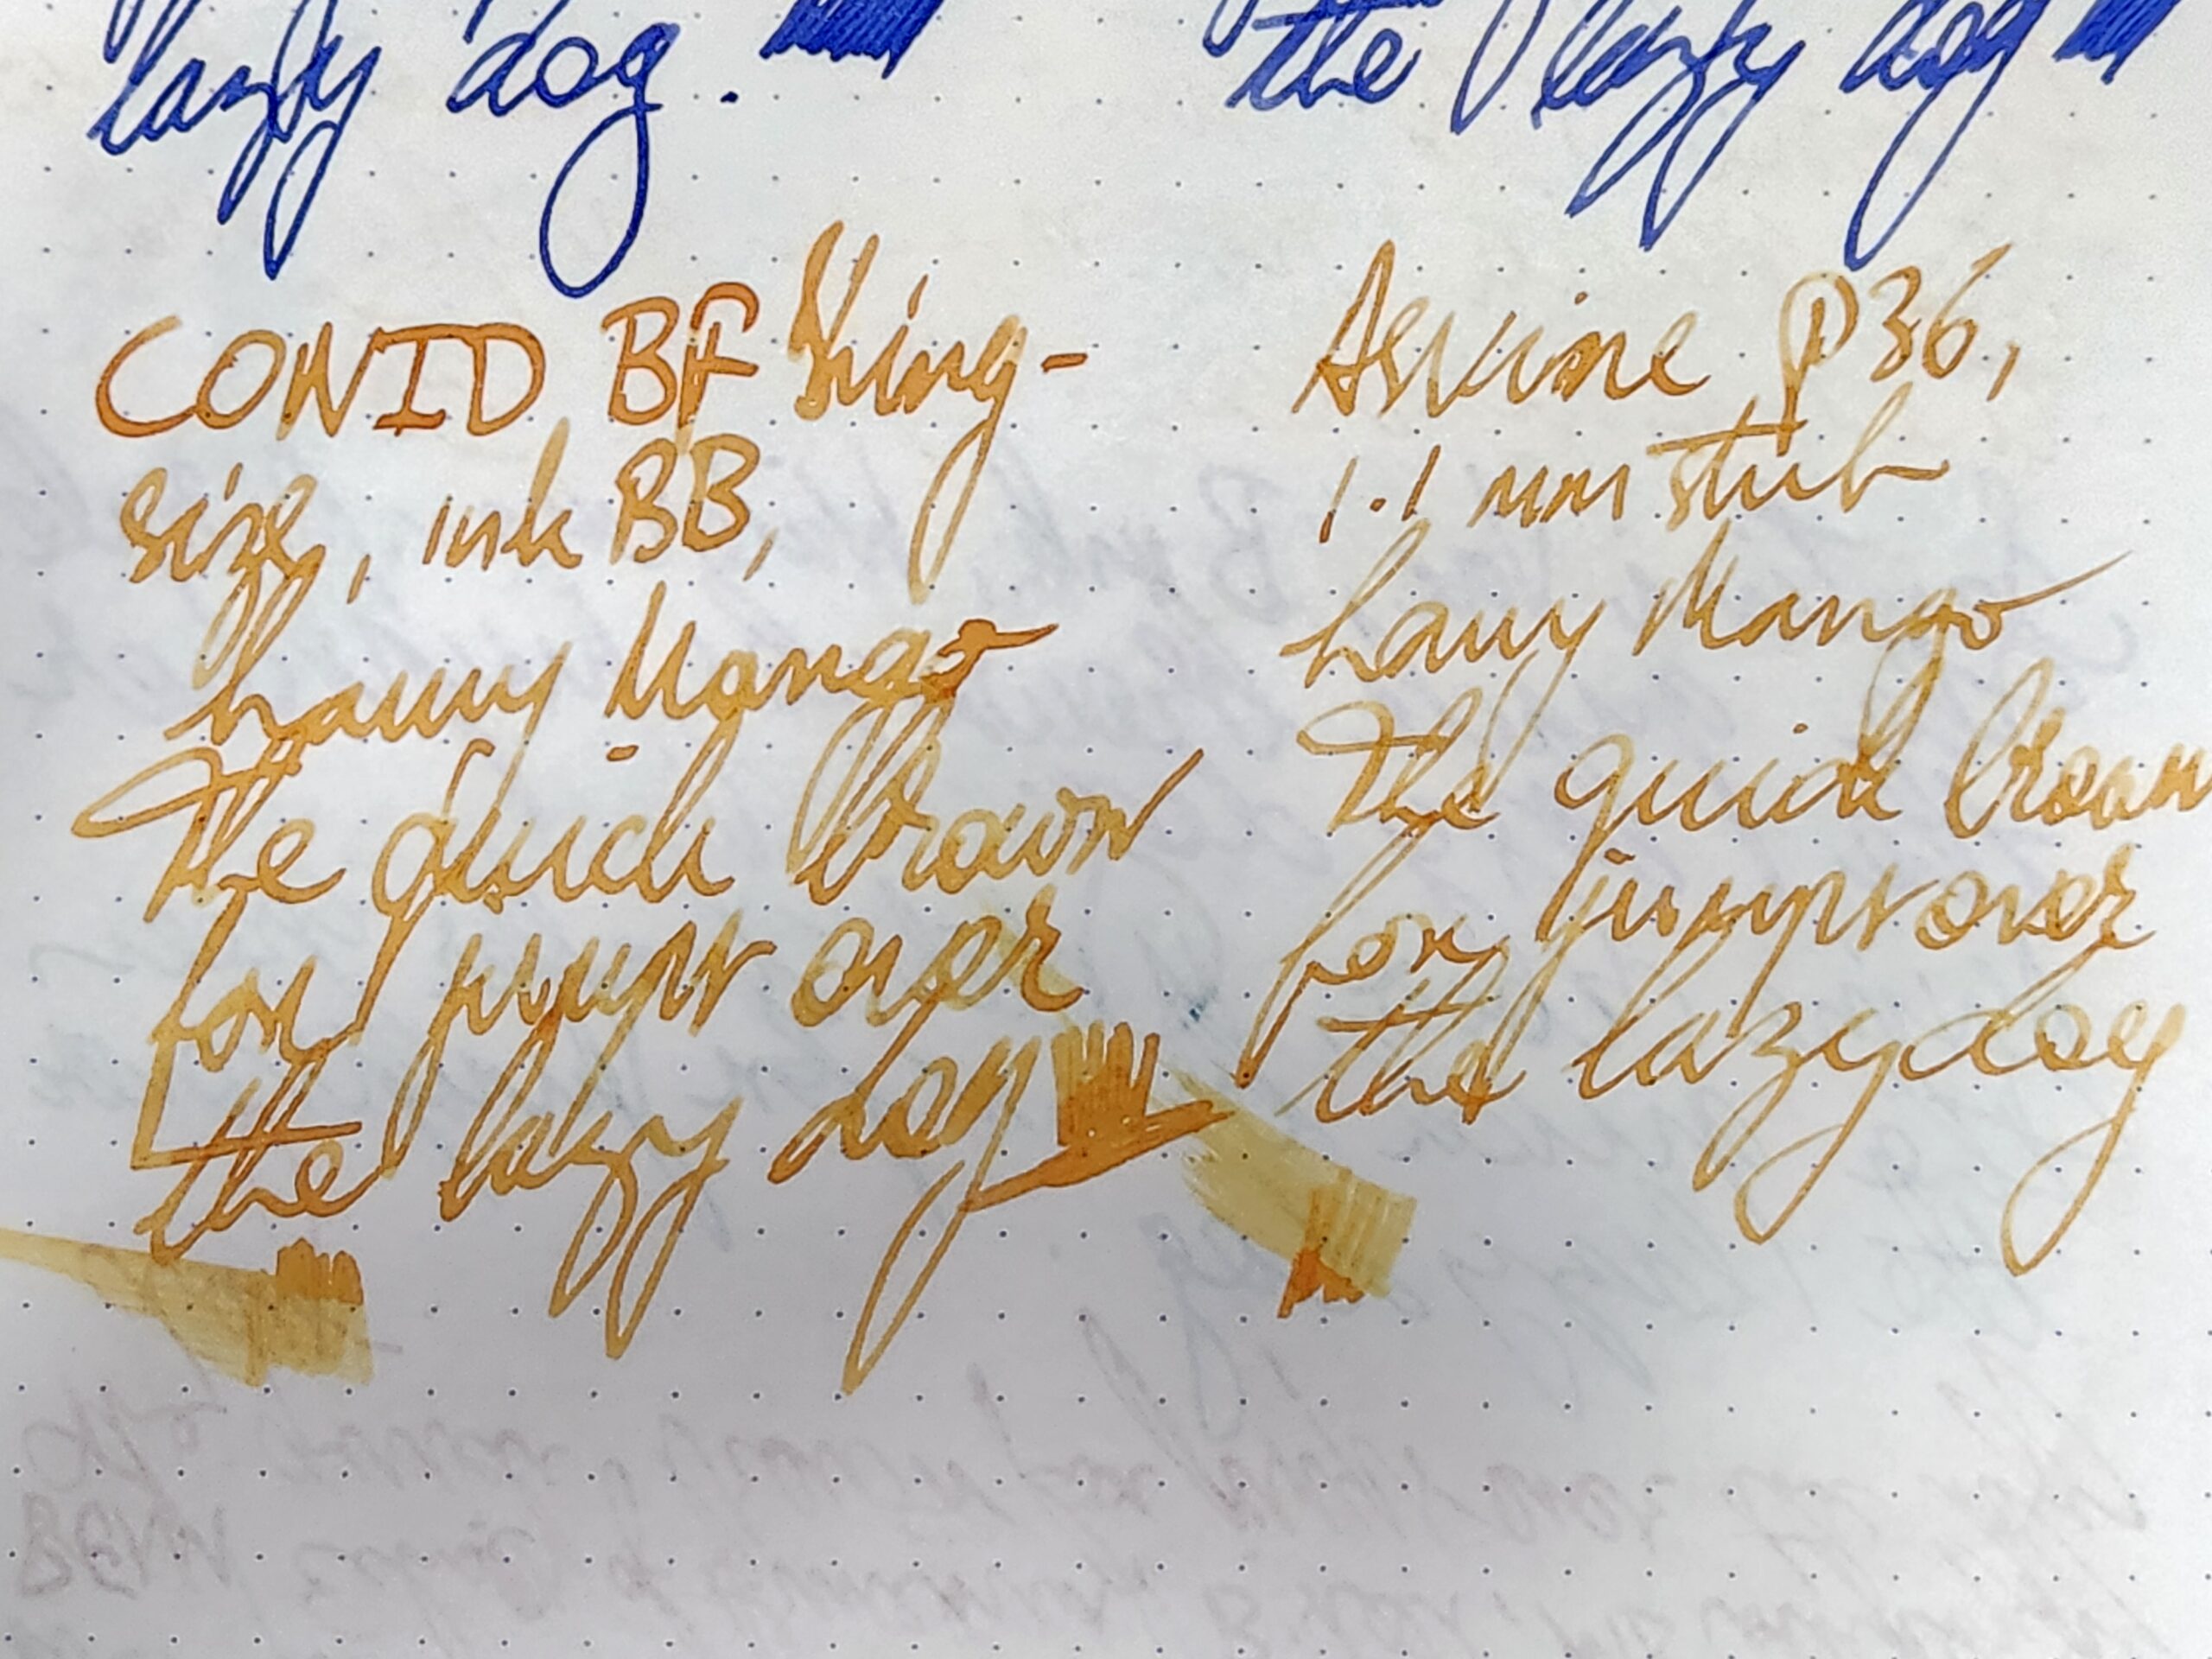 lazy dog.
the lazy dog
CONID BF King-
size, ink BB,
Lamy Mango
The quick brown
fox jumps over
the lazy dog
Asvine P36,
1.1 mm stub
Lamy Mango
The quick brown
fox jumps over
the lazy dog